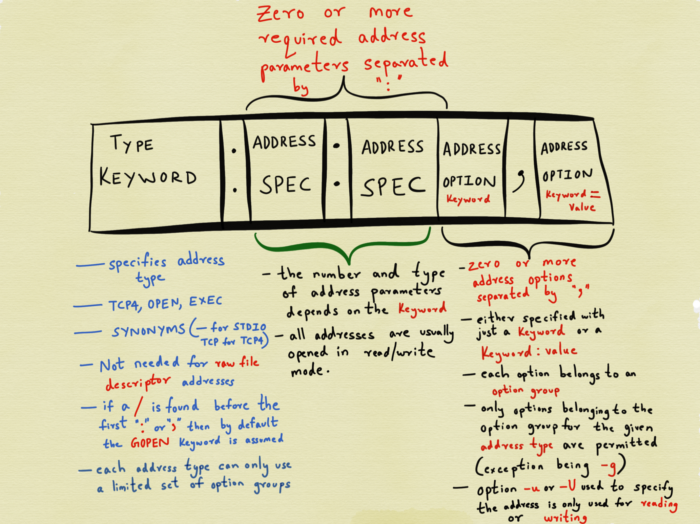 Zero or more
required address
parameters separated
by ":"
TYPE
KEYWORD
:
ADDRESS
SPEC
:
ADDRESS
SPEC
ADDRESS
OPTION
Keyword
,
ADDRESS
OPTION
Keyword =
Value
— specifies address
type
— TCP4, OPEN, EXEC
— SYNONYMS (— for STDIO
TCP for TCP4)
— Not needed for raw file
descriptor addresses
— if a / is found before the
first ":" or "," then by default
the GOPEN Keyword is assumed
— each address type can only use
a limited set of option groups
- the number and type
of address parameters
depends on the Keyword
- all addresses are usually
opened in read/write
mode.
- Zero or more
address options
separated by ","
- either specified with
just a Keyword or a
Keyword : value
- each option belongs to an
option group
- only options belonging to the
option group for the given
address type are permitted
(exception being -g)
- option -u or -U used to specify
the address is only used for reading
or writing